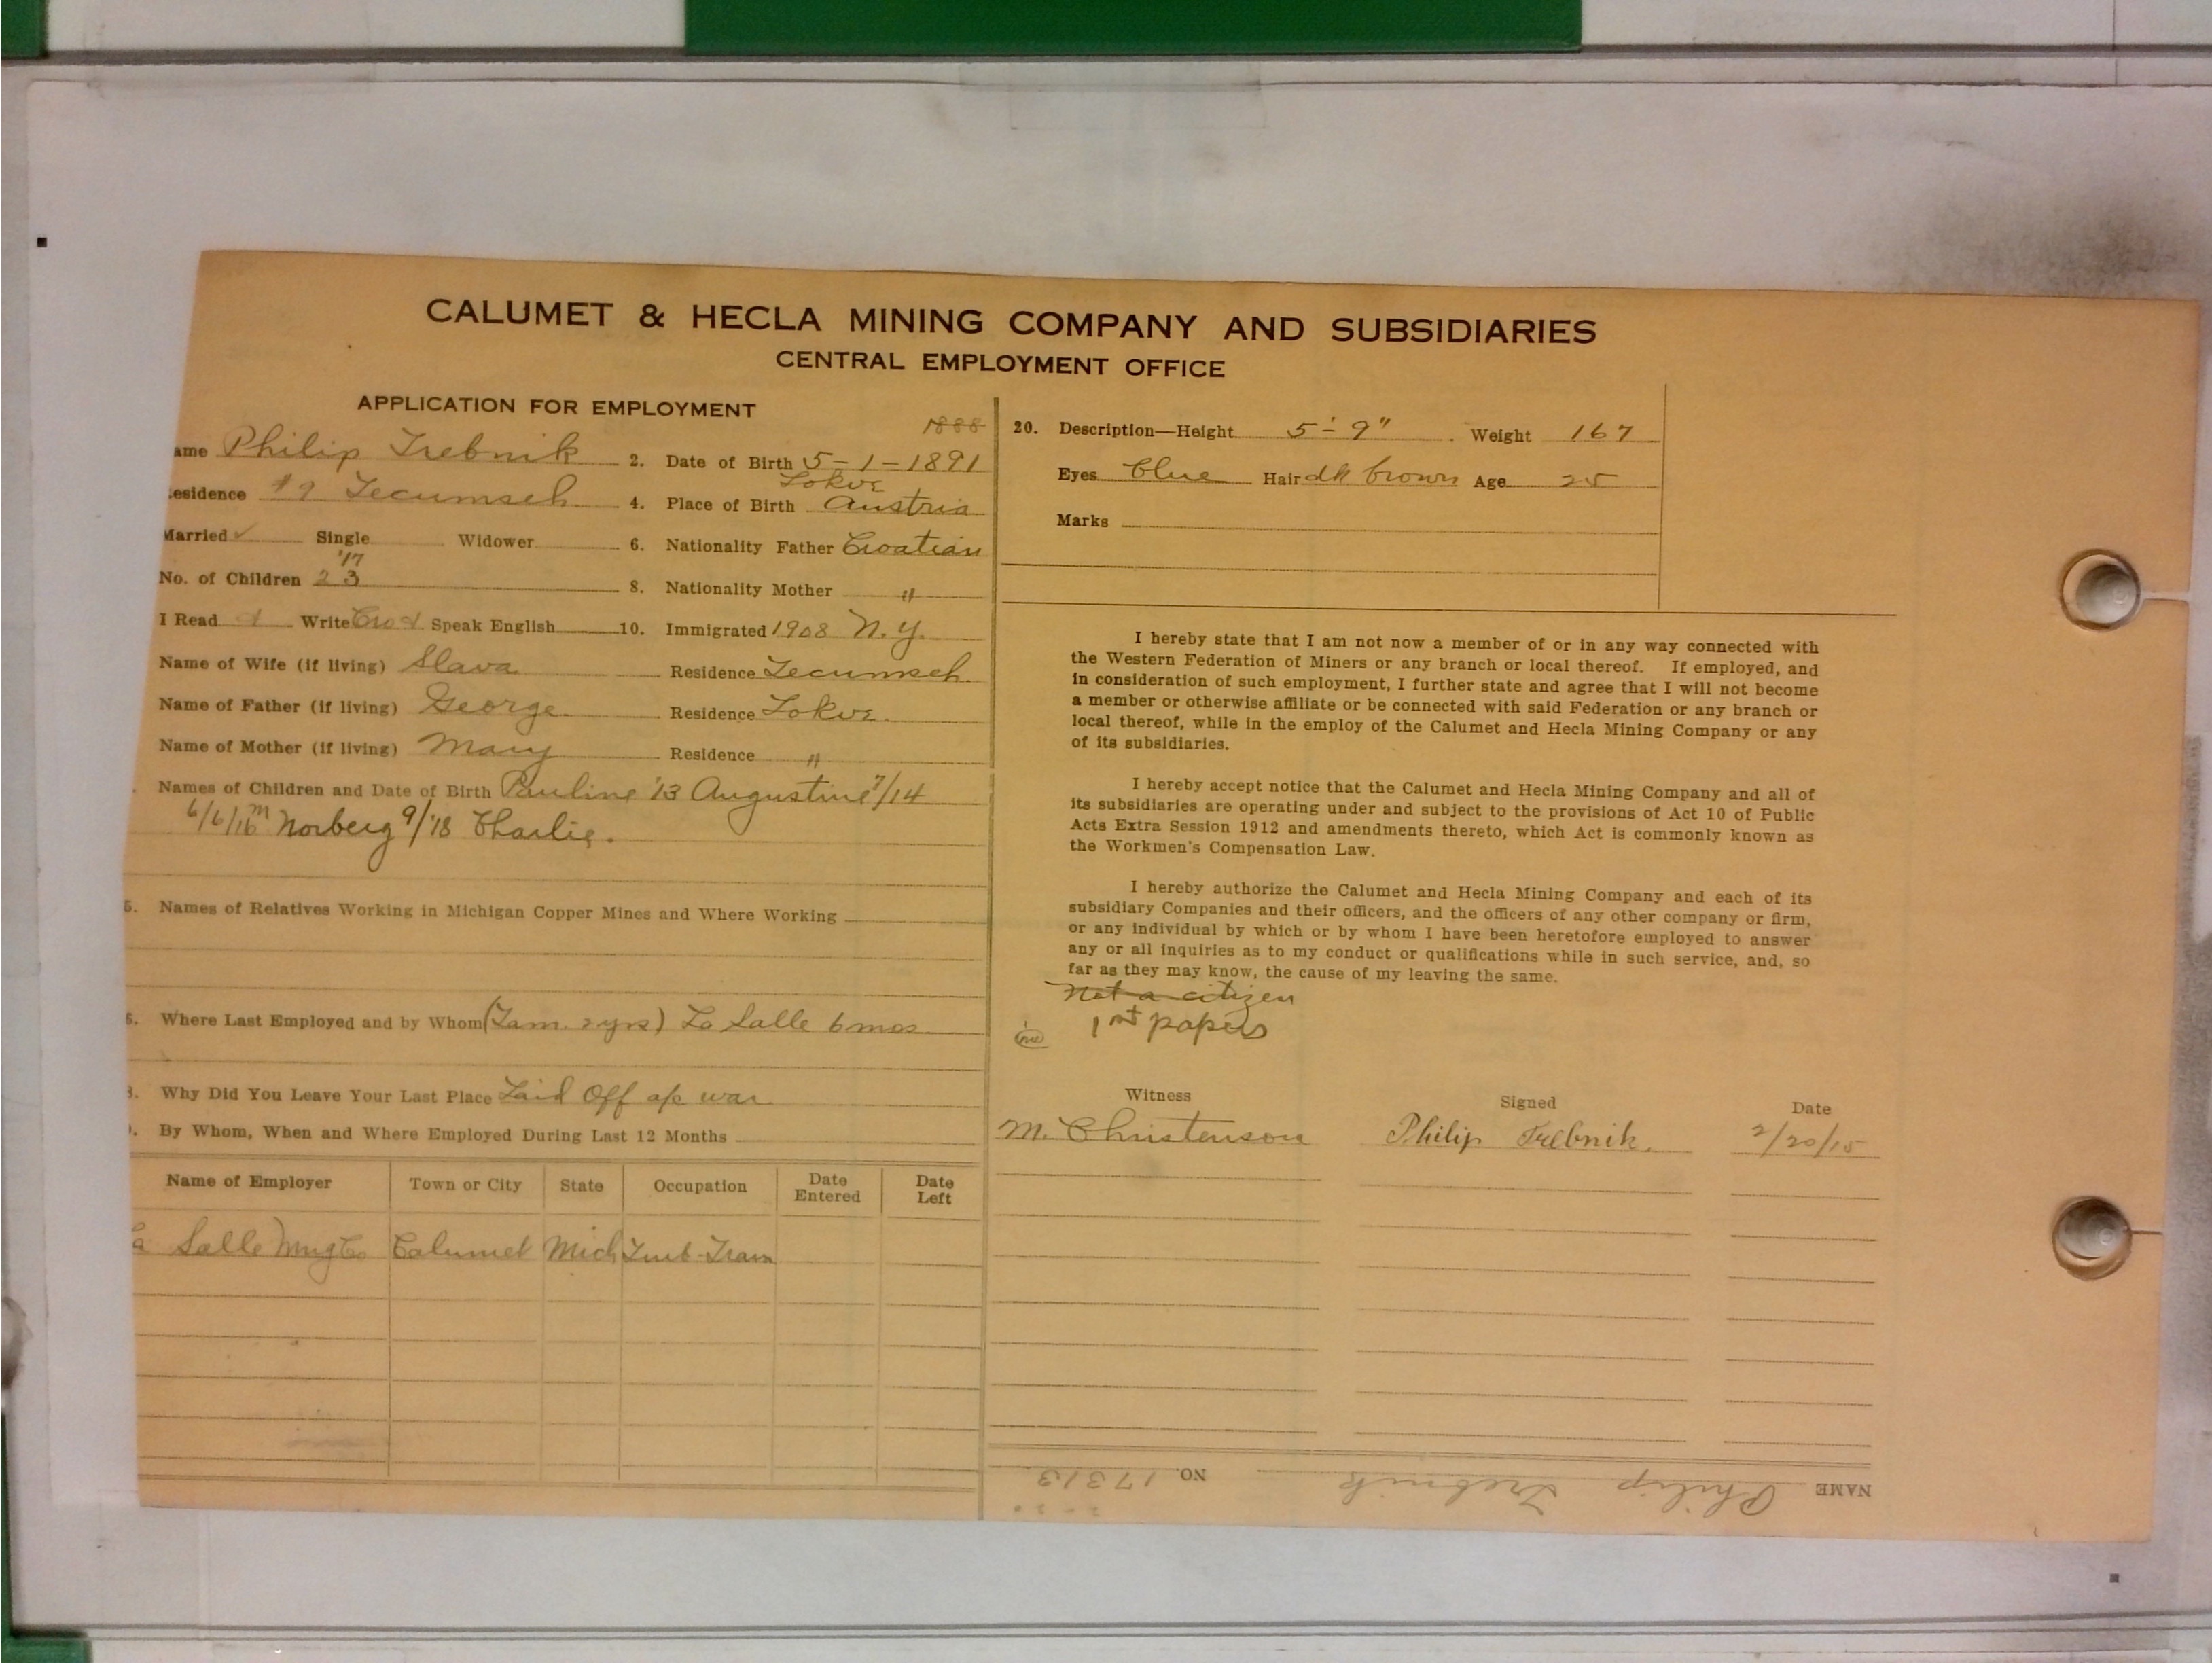 CALUMET & HECLA MINING COMPANY AND SUBSIDIARIES
CENTRAL EMPLOYMENT OFFICE
APPLICATION FOR EMPLOYMENT
1888
ame Philip Trebnik 2. Date of Birth 5-1-1891
Lokve
esidence #9 Tecumseh 4. Place of Birth Austria
Married ✓ Single Widower 6. Nationality Father Croatian
'17
No. of Children 2 3 8. Nationality Mother "
I Read & Write Cro & Speak English 10. Immigrated 1908 N.Y.
Name of Wife (if living) Slava Residence Tecumseh.
Name of Father (if living) George Residence Lokve.
Name of Mother (if living) Mary Residence "
Names of Children and Date of Birth Pauline '13 Augustine 7/14
6/6/16 m Norberg 9/'18 Charlie.
5. Names of Relatives Working in Michigan Copper Mines and Where Working
6. Where Last Employed and by Whom (Tam. 2 yrs) La Salle 6 mos
8. Why Did You Leave Your Last Place Laid Off a/c war
9. By Whom, When and Where Employed During Last 12 Months
Name of Employer Town or City State Occupation Date Entered Date Left
a Salle Mng Co Calumet Mich Tmb-Tram
20. Description—Height 5'-9" Weight 167
Eyes blue Hair dk brown Age 25
Marks
I hereby state that I am not now a member of or in any way connected with
the Western Federation of Miners or any branch or local thereof. If employed, and
in consideration of such employment, I further state and agree that I will not become
a member or otherwise affiliate or be connected with said Federation or any branch or
local thereof, while in the employ of the Calumet and Hecla Mining Company or any
of its subsidiaries.
I hereby accept notice that the Calumet and Hecla Mining Company and all of
its subsidiaries are operating under and subject to the provisions of Act 10 of Public
Acts Extra Session 1912 and amendments thereto, which Act is commonly known as
the Workmen's Compensation Law.
I hereby authorize the Calumet and Hecla Mining Company and each of its
subsidiary Companies and their officers, and the officers of any other company or firm,
or any individual by which or by whom I have been heretofore employed to answer
any or all inquiries as to my conduct or qualifications while in such service, and, so
far as they may know, the cause of my leaving the same.
Not a citizen
1st papers
Witness Signed Date
M. Christenson Philip Trebnik. 2/20/15
NAME Philip Trebnik NO. 17313